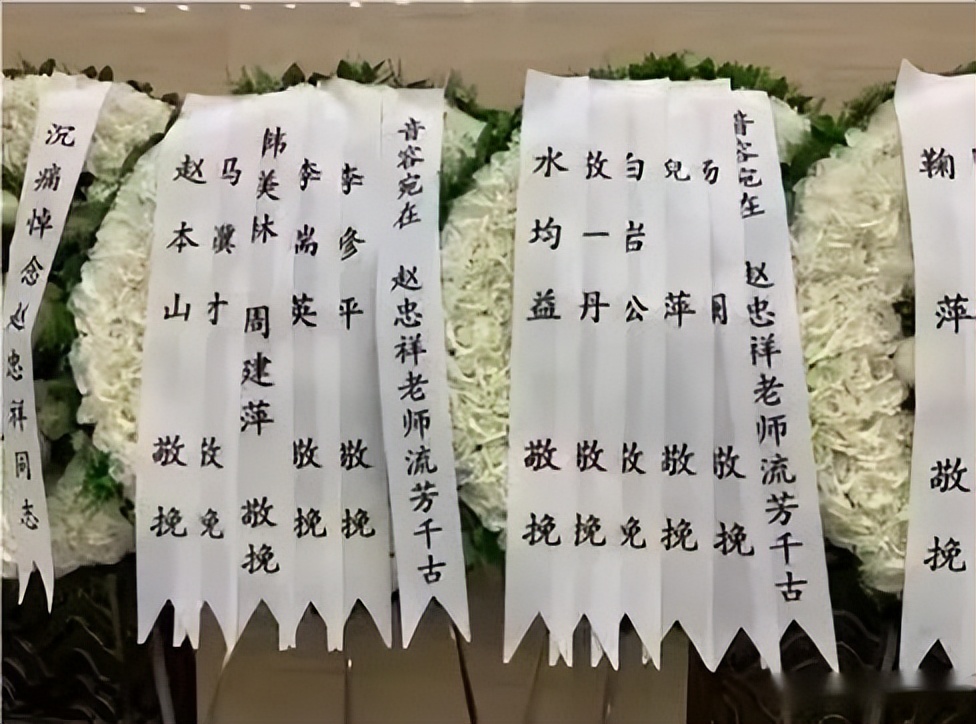 鞠萍 敬挽
音容宛在 赵忠祥老师流芳千古
敬挽
萍 敬挽
敬挽
敬一丹 敬挽
水均益 敬挽
音容宛在 赵忠祥老师流芳千古
李修平 敬挽
李 英 敬挽
韩美林 周建萍 敬挽
马 敬挽
赵本山 敬挽
沉痛悼念赵忠祥同志